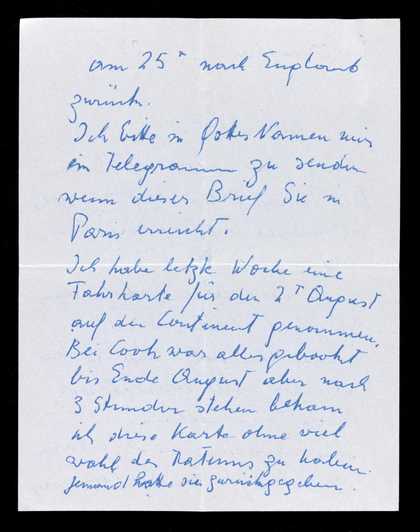 am 25ᵗ nach England
zurück.
Ich bitte in Gottes Namen mir
ein Telegramm zu senden
wenn dieser Brief Sie in
Paris erreicht.
Ich habe letzte Woche eine
Fahrkarte für den 2ᵗ August
auf den Continent genommen.
Bei Cook war alles gebookt
bis Ende August aber nach
3 Stunden stehen bekam
ich diese Karte ohne viel
wahl des Datums zu haben.
Jemand hatte sie zurückgegeben.